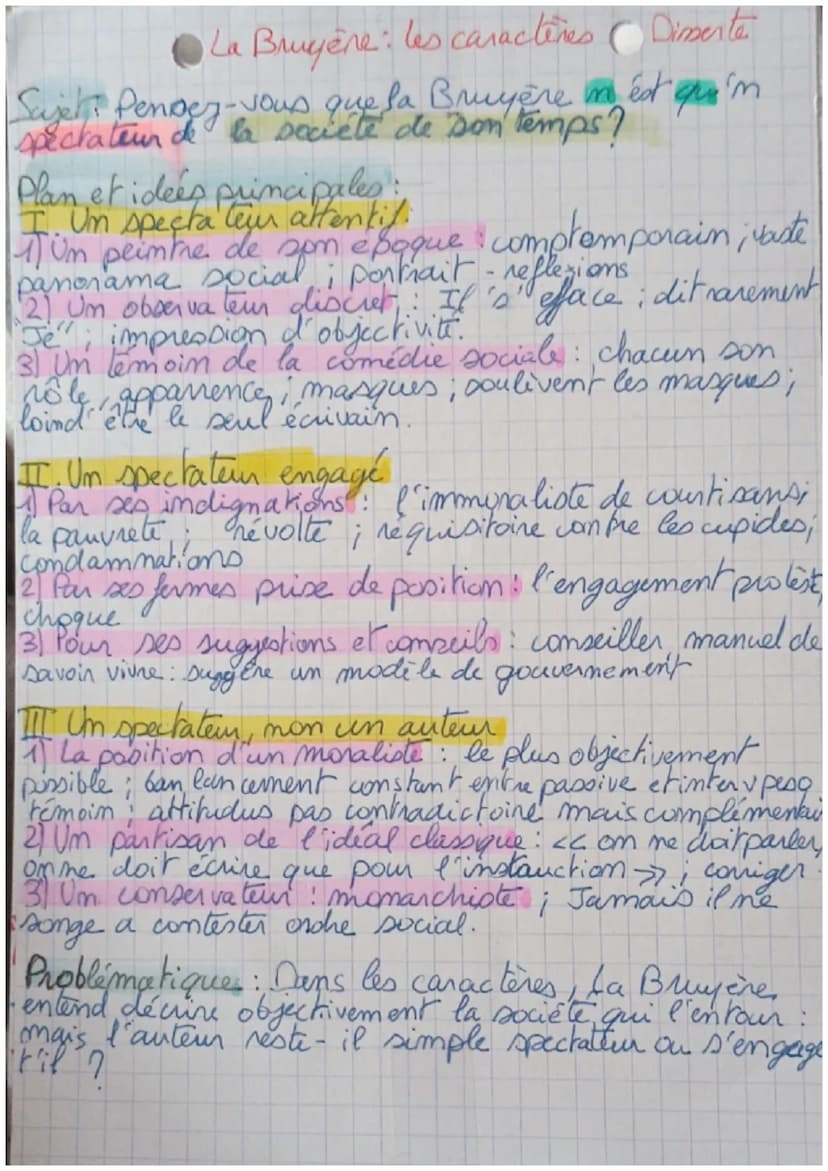 La Bruyère : les caractères Disserte
Sujet : Pensez-vous que La Bruyère n'est qu'un
spectateur de la société de son temps ?
Plan et idées principales :
I. Un spectateur attentif.
1) Un peintre de son époque : comptemporain ; vaste
panorama social ; portrait - reflexions
2) Un observateur discret : Il s'efface ; dit rarement
"Je" ; impression d'objectivité.
3) Un témoin de la comédie sociale : chacun son
rôle, apparrence ; masques ; soulivent les masques ;
loind'être le seul écrivain.
II. Un spectateur engagé
1) Par ses indignations : l'immoraliste de courtisans ;
la pauvreté ; révolte ; réquisitoire contre les cupides ;
condamnations
2) Par ses fermes prise de position : l'engagement protest,
choque
3) Pour ses suggestions et conseils : conseiller, manuel de
savoir vivre : suggère un modèle de gouvernement
III Un spectateur, mon un auteur
1) La position d'un moraliste : le plus objectivement
possible ; constant entre passive et
témoin ; attitudus pas contradictoire mais complémentai
2) Un partisan de l'idéal classique : << on ne doit parler,
on ne doit écrire que pour l'instauction >> ; corriger
3) Un conservateur : monarchiste ; Jamais il ne
songe a contester ordre social.
Problématique : Dans les caractères, La Bruyère
entend décrire objectivement la société qui l'entour :
mais l'auteur reste-il simple spectateur ou s'engage
t'il ?